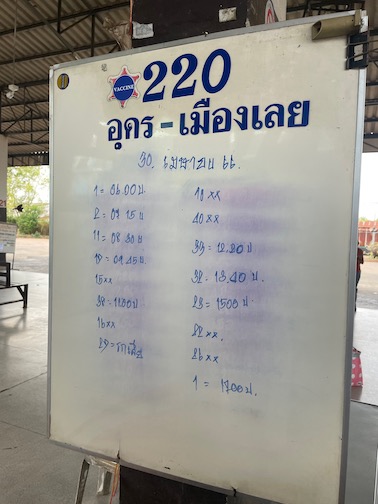 10
VACCINE
220
อุดร - เมืองเลย
30. เมษายน 66.
1 = 06.00 น.
2 = 07 15 น
11 = 08.30 น
19 = 09.45 น.
15 xx
38 = 1100 น
16 xx
29 =
18 xx
40 xx
33 = 12.20 น.
32 = 13.40 น.
23 = 1500 น.
22 xx.
26 xx
1 = 1700 น.